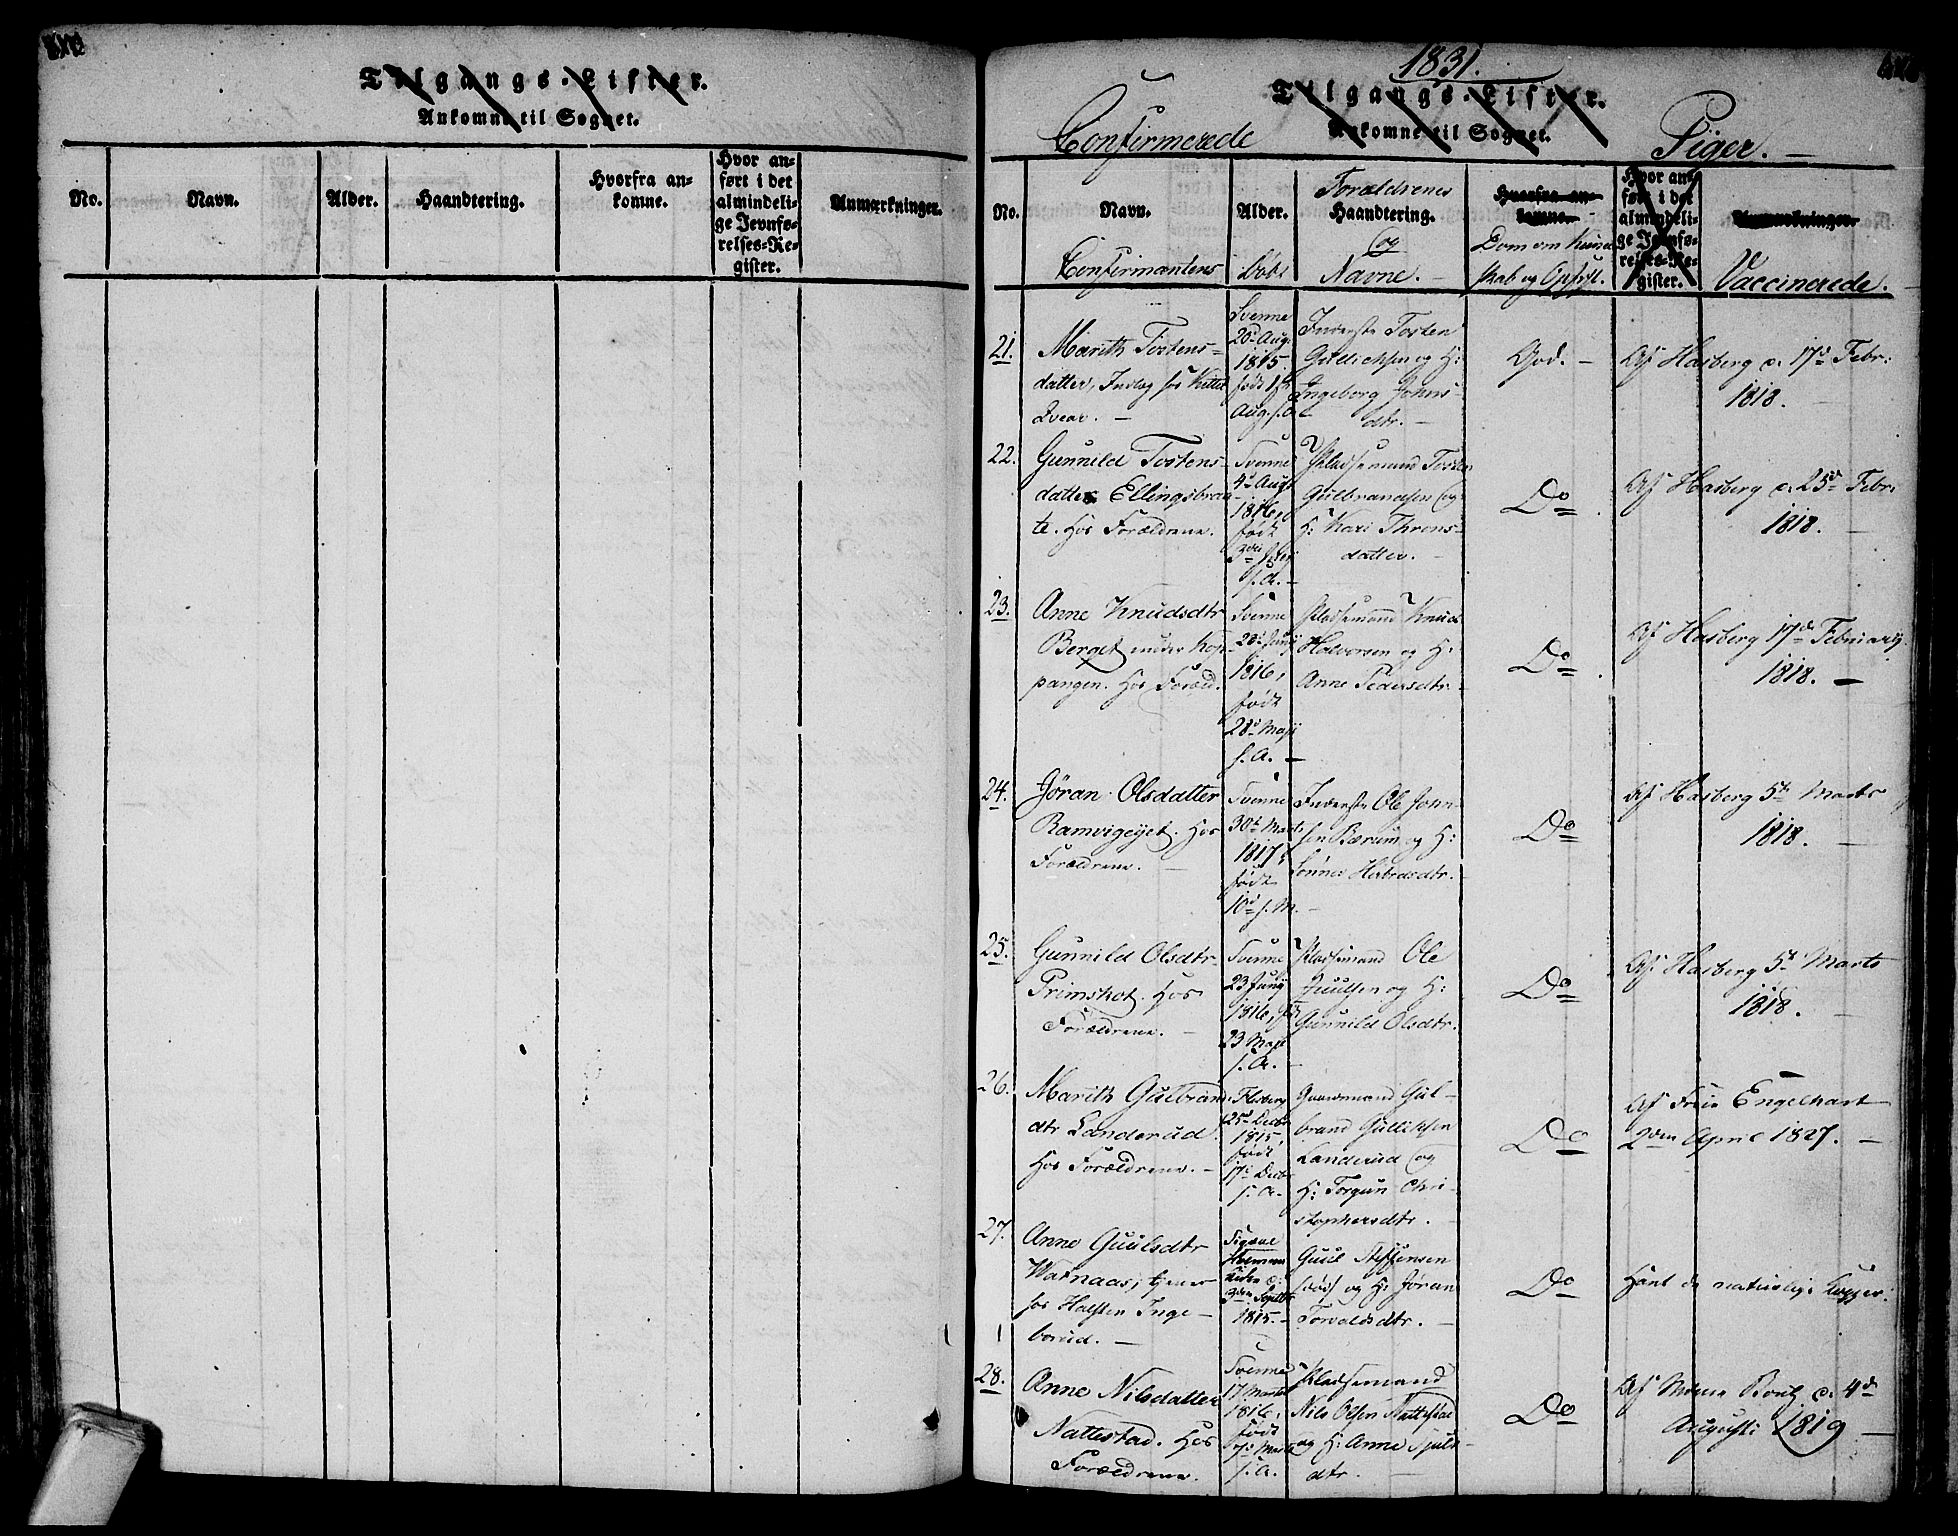 Tilgangs-Lister.
Ankomne til Sognet.
No.
Navn.
Alder.
Haandtering.
Hvorfra an-
komne.
Hvor an-
ført i det
almindeli-
ge Jevnfø-
relses-Re-
gister.
Anmærkninger.
1831.
Tilgangs-Lister.
Ankomne til Sognet.
Confirmerede Piger. —
No.
Navn.
Confirmantens
Alder.
Døbt
Forældrenes
Haandtering.
og
Navne.
Hvorfra an-
komne.
Dom om Kund
skab og Opførs.
Hvor an-
ført i det
almindeli-
ge Jevnfø-
relses-Re-
gister.
Anmærkninger.
Vaccinerede.
21.
Marith Tostens-
datter, Indlag hos Kittel
Qvear. —
Svenne
20d Aug.
1815.
født 1ste
Aug. s. A.
Inderste Tosten
Gullichsen og H:
Ingeborg Johns-
dtr. —
God. —
Af Hasberg d. 17d Febr:
1818. —
22.
Gunnild Tostens-
datter Ellingsbraa-
te. Hos Forældrene.
Svennes
4d Aug.
1816,
født
3die July
s. A. —
Pladsemand Tosten
Gulbrandsen og
H: Kari Throns-
datter. —
Do
Af Hasberg d. 25d Febr:
1818. —
23.
Anne Knudsdtr
Berget under Kop-
pangen. Hos Foræld.
Svenne
23d Juny
1816,
født
28d Maji
s. A. —
Pladsemand Knud
Halvorsen og H:
Anne Pedersdtr.
Do
Af Hasberg 17de February
1818. —
24.
Jøran Olsdatter
Ramvigeyet. Hos
Forældrene. —
Svenne
30d Marts
1817,
født
10d s. M. —
Inderste Ole John-
sen Bærum og H:
Sønnev Herbrdsdtr.
Do
Af Hasberg 5te Marts
1818. —
25.
Gunnild Olsdtr
Primskot. Hos
Forældrene. —
Svenne
23 Juny
1816, født
23 Maji
s. A. —
Pladsemand Ole
Juulsen og H:
Gunnild Olsdtr.
Do
Af Hasberg 5te Marts
1818. —
26.
Marith Gulbrand
dtr Landerud
Hos Forældrene. —
Flesberg
25d Decbr
1815,
født
17d Decbr
s. A.
Gaardmand Gul-
brand Gullichsen
Landerud og
H: Torgun Chri-
stophersdtr. —
Do
Af Frue Engelhart
2den April 1827. —
27.
Anne Guulsdtr
Warnaas, tjener
hos Halsten Inge-
borud. —
Sigdal
d.
3den Septbr
1815. —
Guul Steffensen
død og H: Jøran
Torvaldsdtr. —
Do
Havt de naturlige Kopper.
28.
Anne Nilsdatter
Nattestad. Hos
Forældrene.
Svenne
17 Marts
1816,
født
5d Marts
s. A.
Pladsemand
Nils Olsen Nattestad
og H: Anne Sjuls-
dtr. —
Do
Af d. 4de
Augusti 1819 —